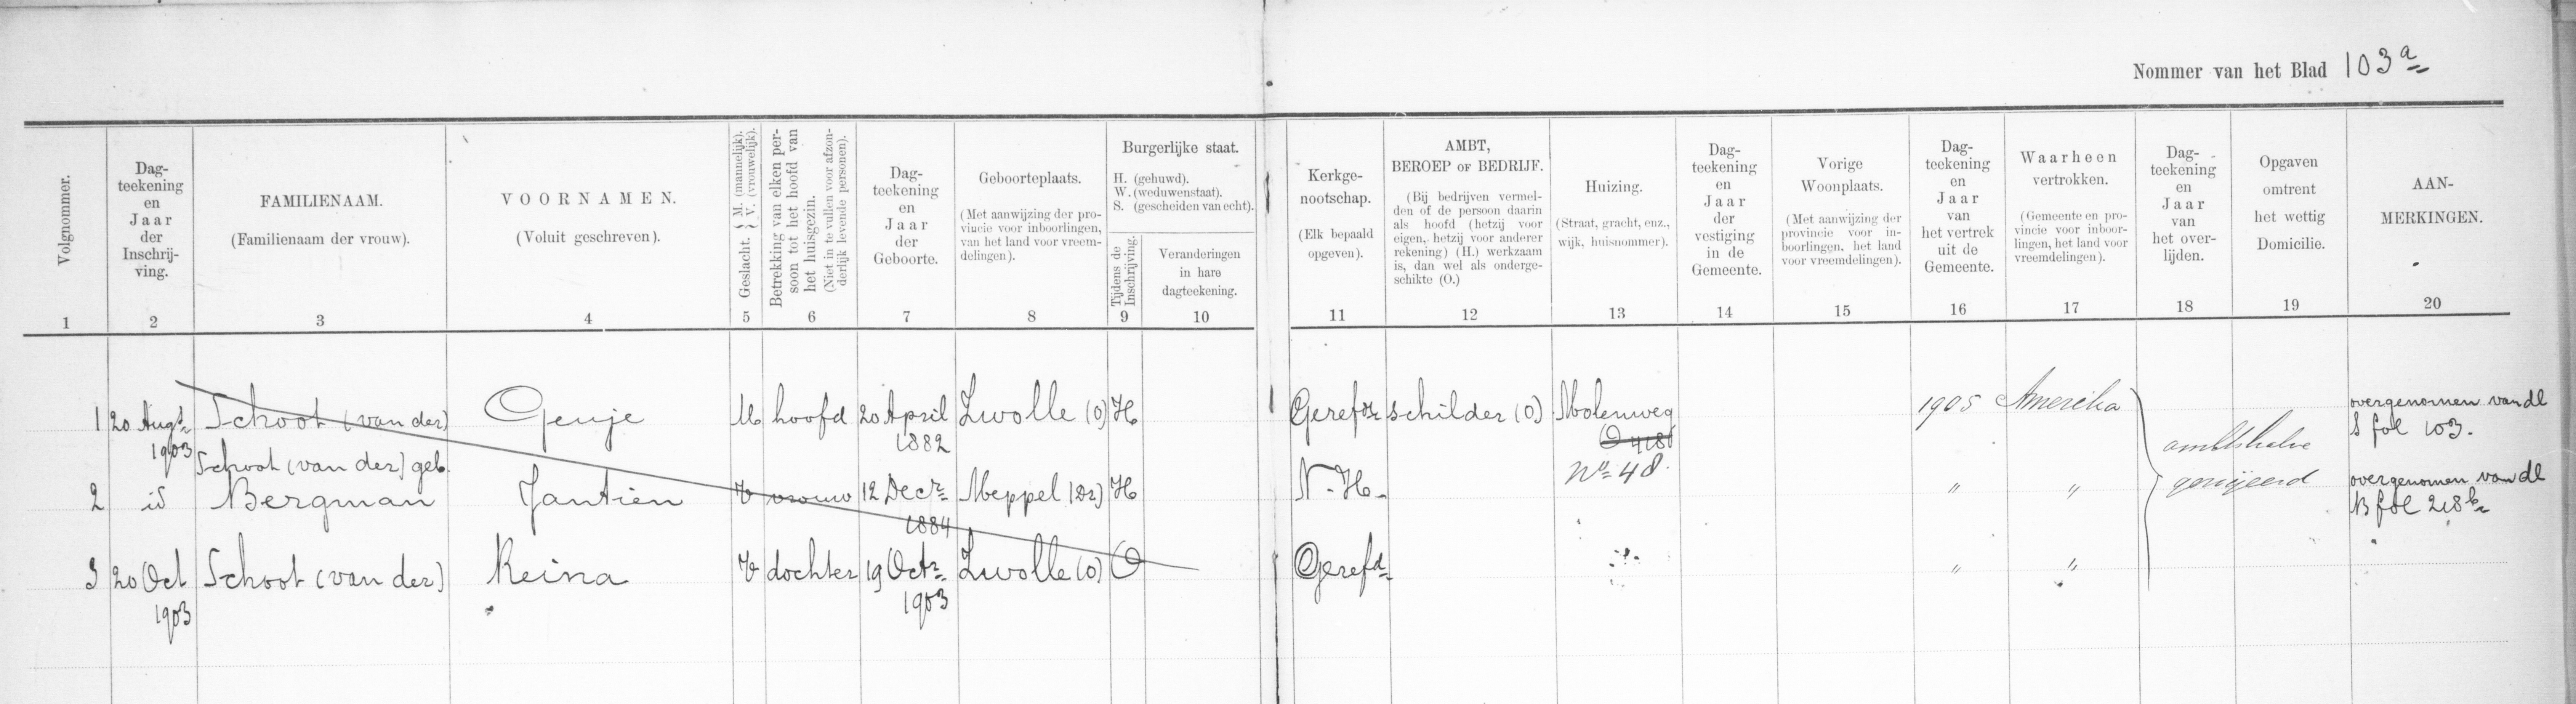 Nommer van het Blad 103a
Volgnommer.
Dag-
teekening
en
Jaar
der
Inschrij-
ving.
FAMILIENAAM.
(Familienaam der vrouw).
VOORNAMEN.
(Voluit geschreven).
Geslacht. { M. (mannelijk). V. (vrouwelijk).
Betrekking van elken per-
soon tot het hoofd van
het huisgezin.
(Niet in te vullen voor afzon-
derlijk levende personen).
Dag-
teekening
en
Jaar
der
Geboorte.
Geboorteplaats.
(Met aanwijzing der pro-
vincie voor inboorlingen,
van het land voor vreem-
delingen).
Burgerlijke staat.
H. (gehuwd).
W. (weduwenstaat).
S. (gescheiden van echt).
Tijdens de
Inschrijving.
Veranderingen
in hare
dagteekening.
Kerkge-
nootschap.
(Elk bepaald
opgeven).
AMBT,
BEROEP OF BEDRIJF.
(Bij bedrijven vermel-
den of de persoon daarin
als hoofd (hetzij voor
eigen, hetzij voor anderer
rekening) (H.) werkzaam
is, dan wel als onderge-
schikte (O.)
Huizing.
(Straat, gracht, enz.,
wijk, huisnommer).
Dag-
teekening
en
Jaar
der
vestiging
in de
Gemeente.
Vorige
Woonplaats.
(Met aanwijzing der
provincie voor in-
boorlingen, het land
voor vreemdelingen).
Dag-
teekening
en
Jaar
van
het vertrek
uit de
Gemeente.
Waarheen
vertrokken.
(Gemeente en pro-
vincie voor inboor-
lingen, het land voor
vreemdelingen).
Dag-
teekening
en
Jaar
van
het over-
lijden.
Opgaven
omtrent
het wettig
Domicilie.
AAN-
MERKINGEN.
1 2 3 4 5 6 7 8 9 10 11 12 13 14 15 16 17 18 19 20
1 20 Augs. Schoot (van der) Geuje M hoofd 20 April Zwolle (O) H Gerefde schilder (O) Molenweg 1905 Amerika overgenomen van dl
1903 1882 S fol 103.
Schoot (van der) geb. No. 48. ambtshalve
2 id Bergman Jantien V vrouw 12 Decr. Meppel (Dr) H N.H. " " geroijeerd overgenomen van dl
1884 B fol 218k
3 20 Oct Schoot (van der) Reina V dochter 19 Octr. Zwolle (O) O Gerefd. " "
1903 1903